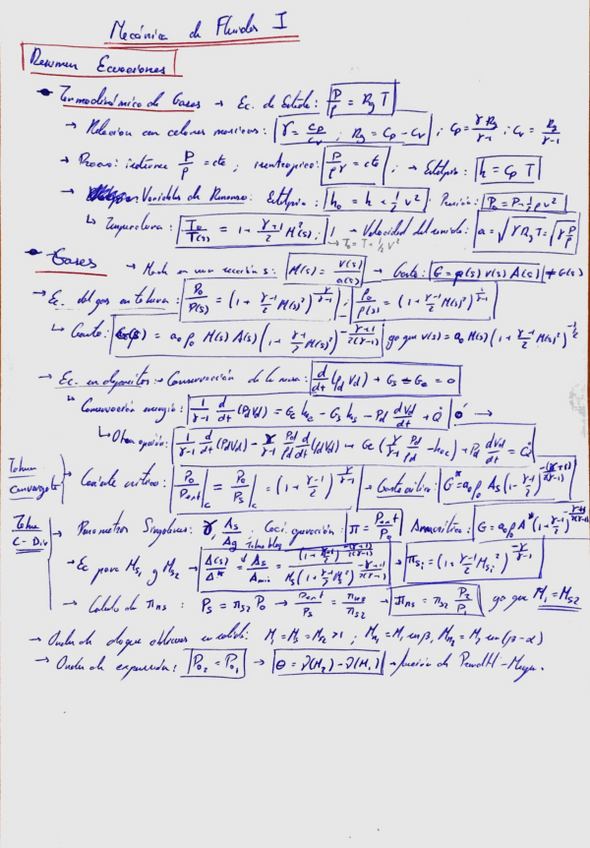 Mecánica de Fluidos I
Resumen Ecuaciones
• Termodinámica de Gases → Ec. de Estado: P/ρ = Rg T
→ Relacion con calores : γ = Cp/Cv ; Rg = Cp - Cv ; Cp = γRg/γ-1 ; Cv = Rg/γ-1
→ Proceso: P/ρ = cte ; isentropico: P/ρ^γ = cte ; → Entalpia: h = Cp T
→ Variables de Remanso: Entalpia: h₀ = h + ½ v² Presión: P₀ = P + ½ ρv²
↳ Temperatura: T₀/T(s) = 1 + γ-1/2 M²(s) ; → Velocidad del sonido: a = √γ Rg T = √γ P/ρ
→ T₀ = T + ½ v²
• Gases → Mach en una sección s: M(s) = v(s)/a(s) → Gasto: G = ρ(s) v(s) A(s) ≠ G(s)
→ Ec. del gas en tobera: P₀/P(s) = (1 + γ-1/2 M(s)²)^γ/γ-1 ; ρ₀/ρ(s) = (1 + γ-1/2 M(s)²)^1/γ-1
↳ Gasto: = a₀ρ₀ M(s) A(s) (1 + γ-1/2 M(s)²)^-γ+1/2(γ-1) ya que v(s) = a₀ M(s) (1 + γ-1/2 M(s)²)^-½
→ Ec. en depositos → Conservación de la masa: d/dt (ρd Vd) + Gs - Ge = 0
↳ Conservación energía: 1/γ-1 d/dt (Pd Vd) = Ge hoe - Gs hs - Pd dVd/dt + Q̇ ó →
↳ Otra opción: 1/γ-1 d/dt (Pd Vd) - γ/γ-1 Pd/ρd d/dt (ρd Vd) + Ge (γ/γ-1 Pd/ρd - hoe) + Pd dVd/dt = Q̇
Tobera Convergente → Gasto crítico: P₀/Psal |c = P₀/Ps |c = (1 + γ-1/2)^γ/γ-1 → Gasto crítico: G* = a₀ρ₀ As (1 + γ-1/2)^-(γ+1)/2(γ-1)
Tobera C-Div → Parametros Singulares: γ, As/Ag ; π = /P₀ G = a₀ρ₀ A* (1 + γ-1/2)^-γ+1/2(γ-1)
→ Ec para Ms₁ y Ms₂ → A(s)/A* As/Amin = (1 + γ-1/2)^-γ+1/2(γ-1) / Ms (1 + γ-1/2 Ms²)^-γ+1/2(γ-1) → πsi = (1 + γ-1/2 Msi²)^-γ/γ-1
→ Calculo de πns : Ps = πs2 P₀ → /Ps = πns/πs2 → πns = πs2 P₂/P₁ ya que M₁ = Ms2
→ Onda de choque oblicua en salida: M₁ = Ms = Ms2 > 1 ; Mn₁ = M₁ sen β, Mn₂ = M₂ sen (β - α)
→ Onda de expansión: P₀₂ = P₀₁ → θ = ν(M₂) - ν(M₁) → función de Prandtl - Meyer.